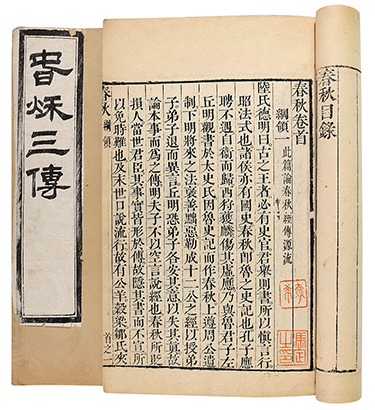 春秋目錄
春秋卷首
綱領一 此篇論春秋經傳源流
陸氏德明曰古之王者必有史官君舉則書所以慎言行
昭法式也諸侯亦有國史春秋即魯之史記也孔子應
聘不遇自衛而歸西狩獲麟傷其虛應乃與魯君子左
丘明觀書於太史氏因魯史記而作春秋上遵周公遺
制下明將來之法褒善黜惡勒成十二公之經以授弟
子弟子退而異言丘明恐弟子各安其意以失其真故
論本事而爲之傳明夫子不以空言說經也春秋所貶
損人當世君臣其事實皆形於傳故隱其書而不宣所
以免時難也及末世口說流行故有公羊穀梁鄒氏夾
春秋 綱領 首之一
旾秌三傳